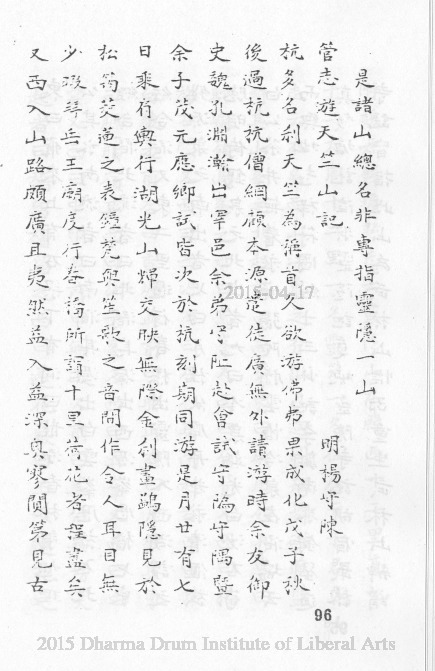 是諸山總名非專指靈隱一山
管志遊天竺山記
明楊守陳
杭多名刹天竺為稱首久欲游佛弗果成化戊子秋
後過杭杭僧綱顧本源遣徒廣無外請游時余友御
史魏孔淵瀚出宰邑余弟守阯赴會試守隨守隅暨
余子茂元應鄉試皆次於杭刻期同游是月廿有七
日乘筍輿行湖光山輝交映無際金刹畫鷁隱見於
松筠芰蓮之表鐘梵與笙歌之音間作令人耳目無
少暇拜岳王廟度行春橋所謂十里荷花者程盡矣
又西入山路頗廣且夷然益入益深奥寥闃第見古
2015-04-17
96
2015 Dharma Drum Institute of Liberal Arts